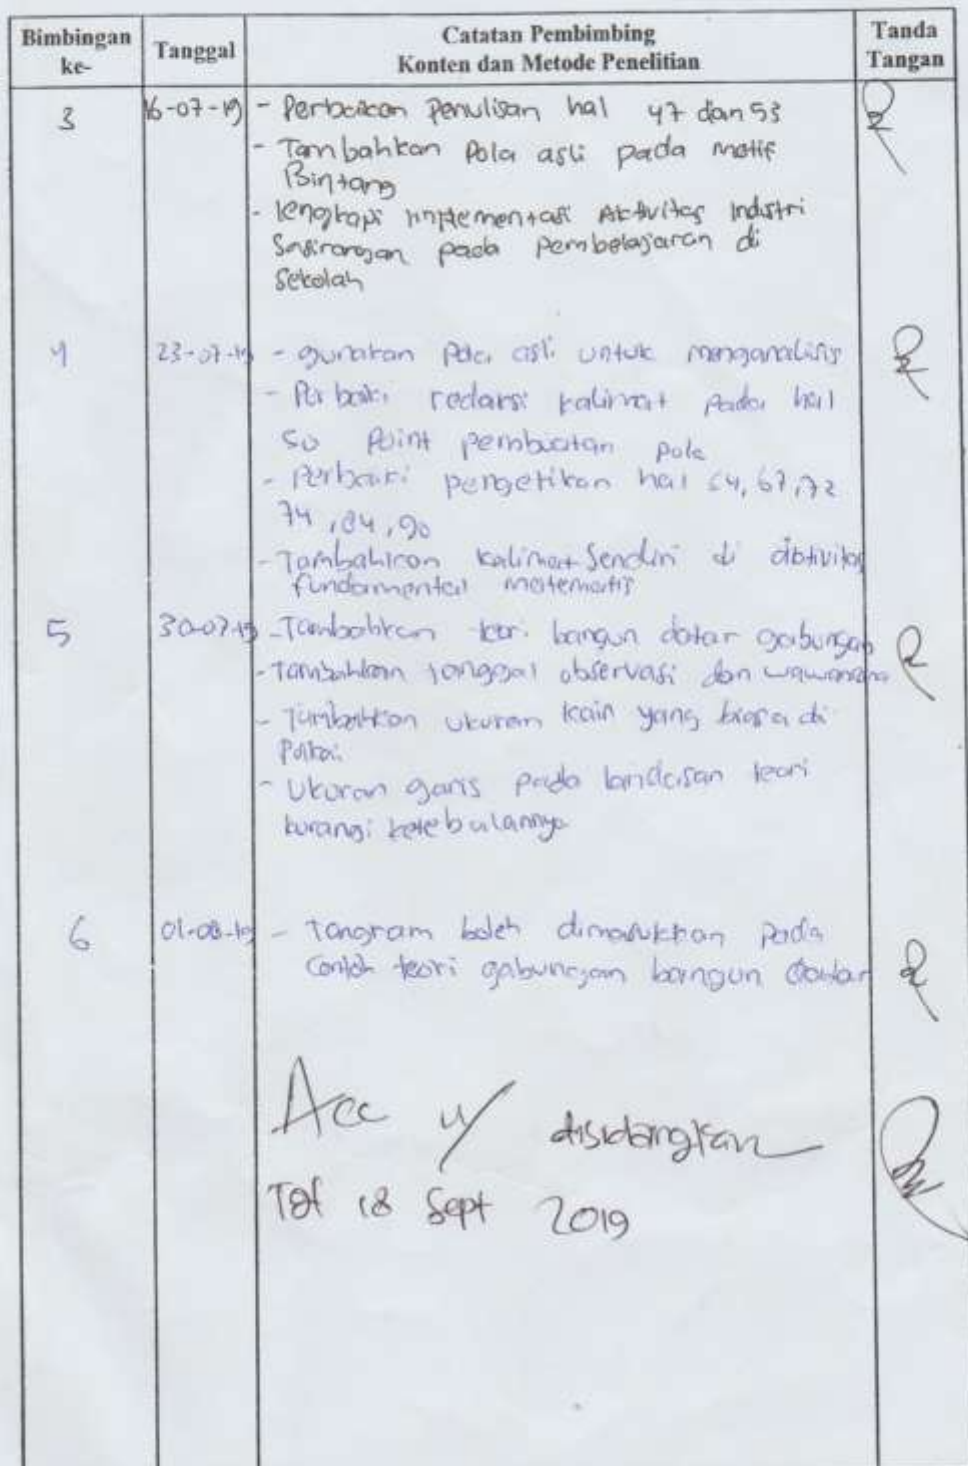 Bimbingan ke- Tanggal Catatan Pembimbing Konten dan Metode Penelitian Tanda Tangan
3 16-07-19 - Perbaikan Penulisan hal 47 dan 53
- Tambahkan Pola asli pada motif
Bintang
- lengkapi implementasi Aktivitas Industri
Sasirangan pada pembelajaran di
Sekolah
4 23-07-19 - gunakan Pola asli untuk menganalisis
- Perbaiki redaksi kalimat pada hal
50 Point pembuatan pola
- Perbaiki pengetikan hal 64, 67, 72
74, 84, 90
- Tambahkan kalimat Sendiri di aktivitas
fundamental matematis
5 30-07-19 - Tambahkan teori bangun datar gabungan
- Tambahkan tanggal observasi dan wawancara
- Tambahkan ukuran kain yang biasa di
Pakai
- Ukuran garis pada landasan teori
kurangi ketebalannya
6 01-08-19 - Tangram boleh dimasukkan pada
Contoh teori gabungan bangun datar
Acc u/ disidangkan
Tgl 18 Sept 2019